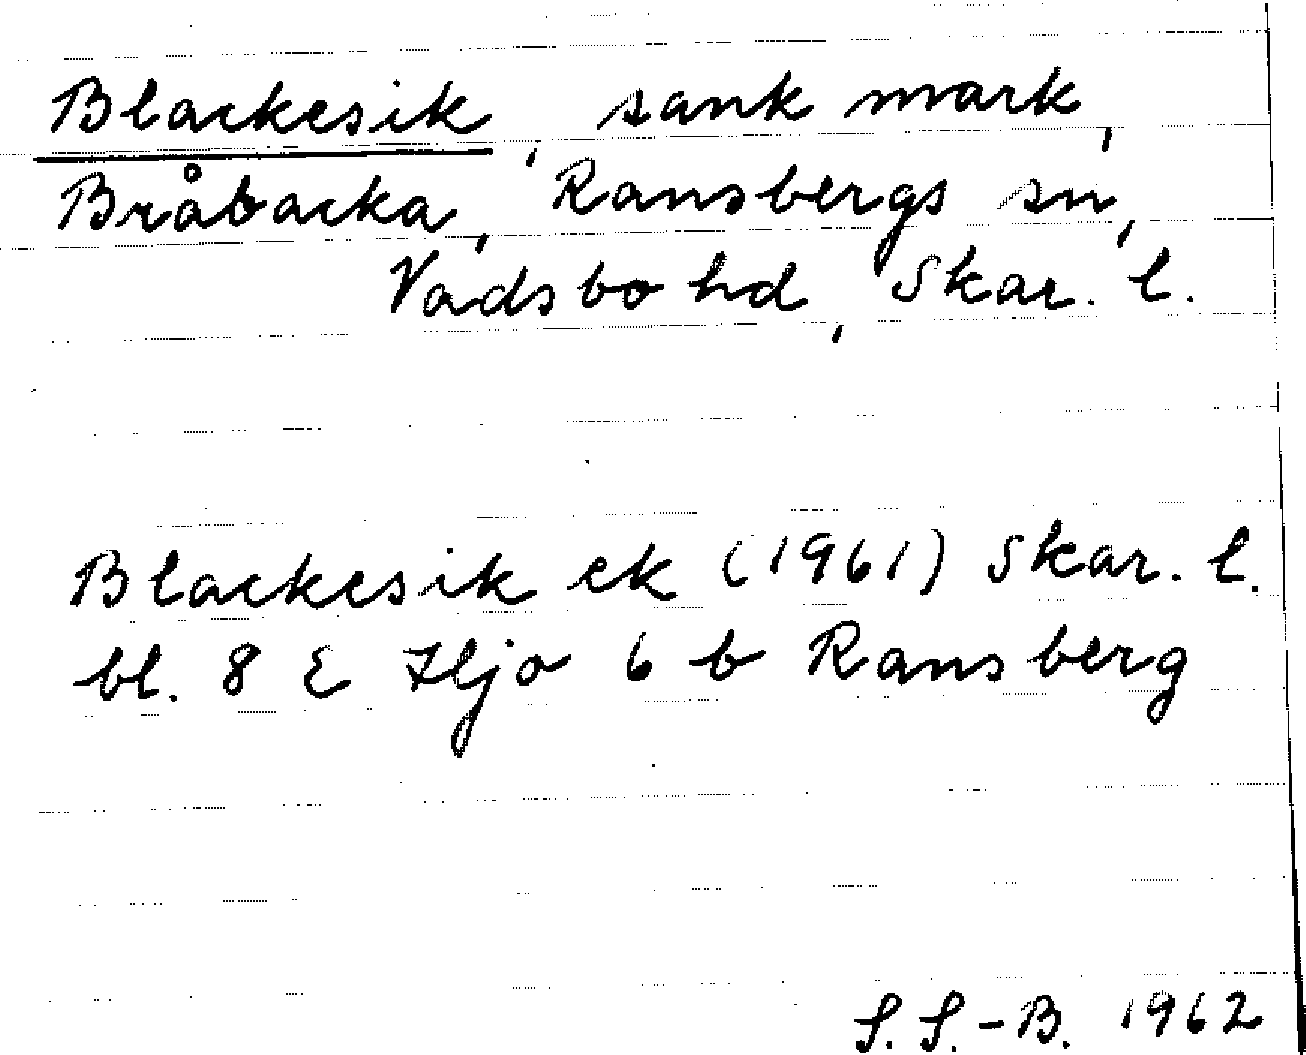 Blackesik, sank mark,
Bråbacka, Ransbergs sn,
Vadsbo hd, Skar. l.
Blackesik ek (1961) Skar. l.
bl. 8 E Hjo 6 b Ransberg
S.S.-B. 1962